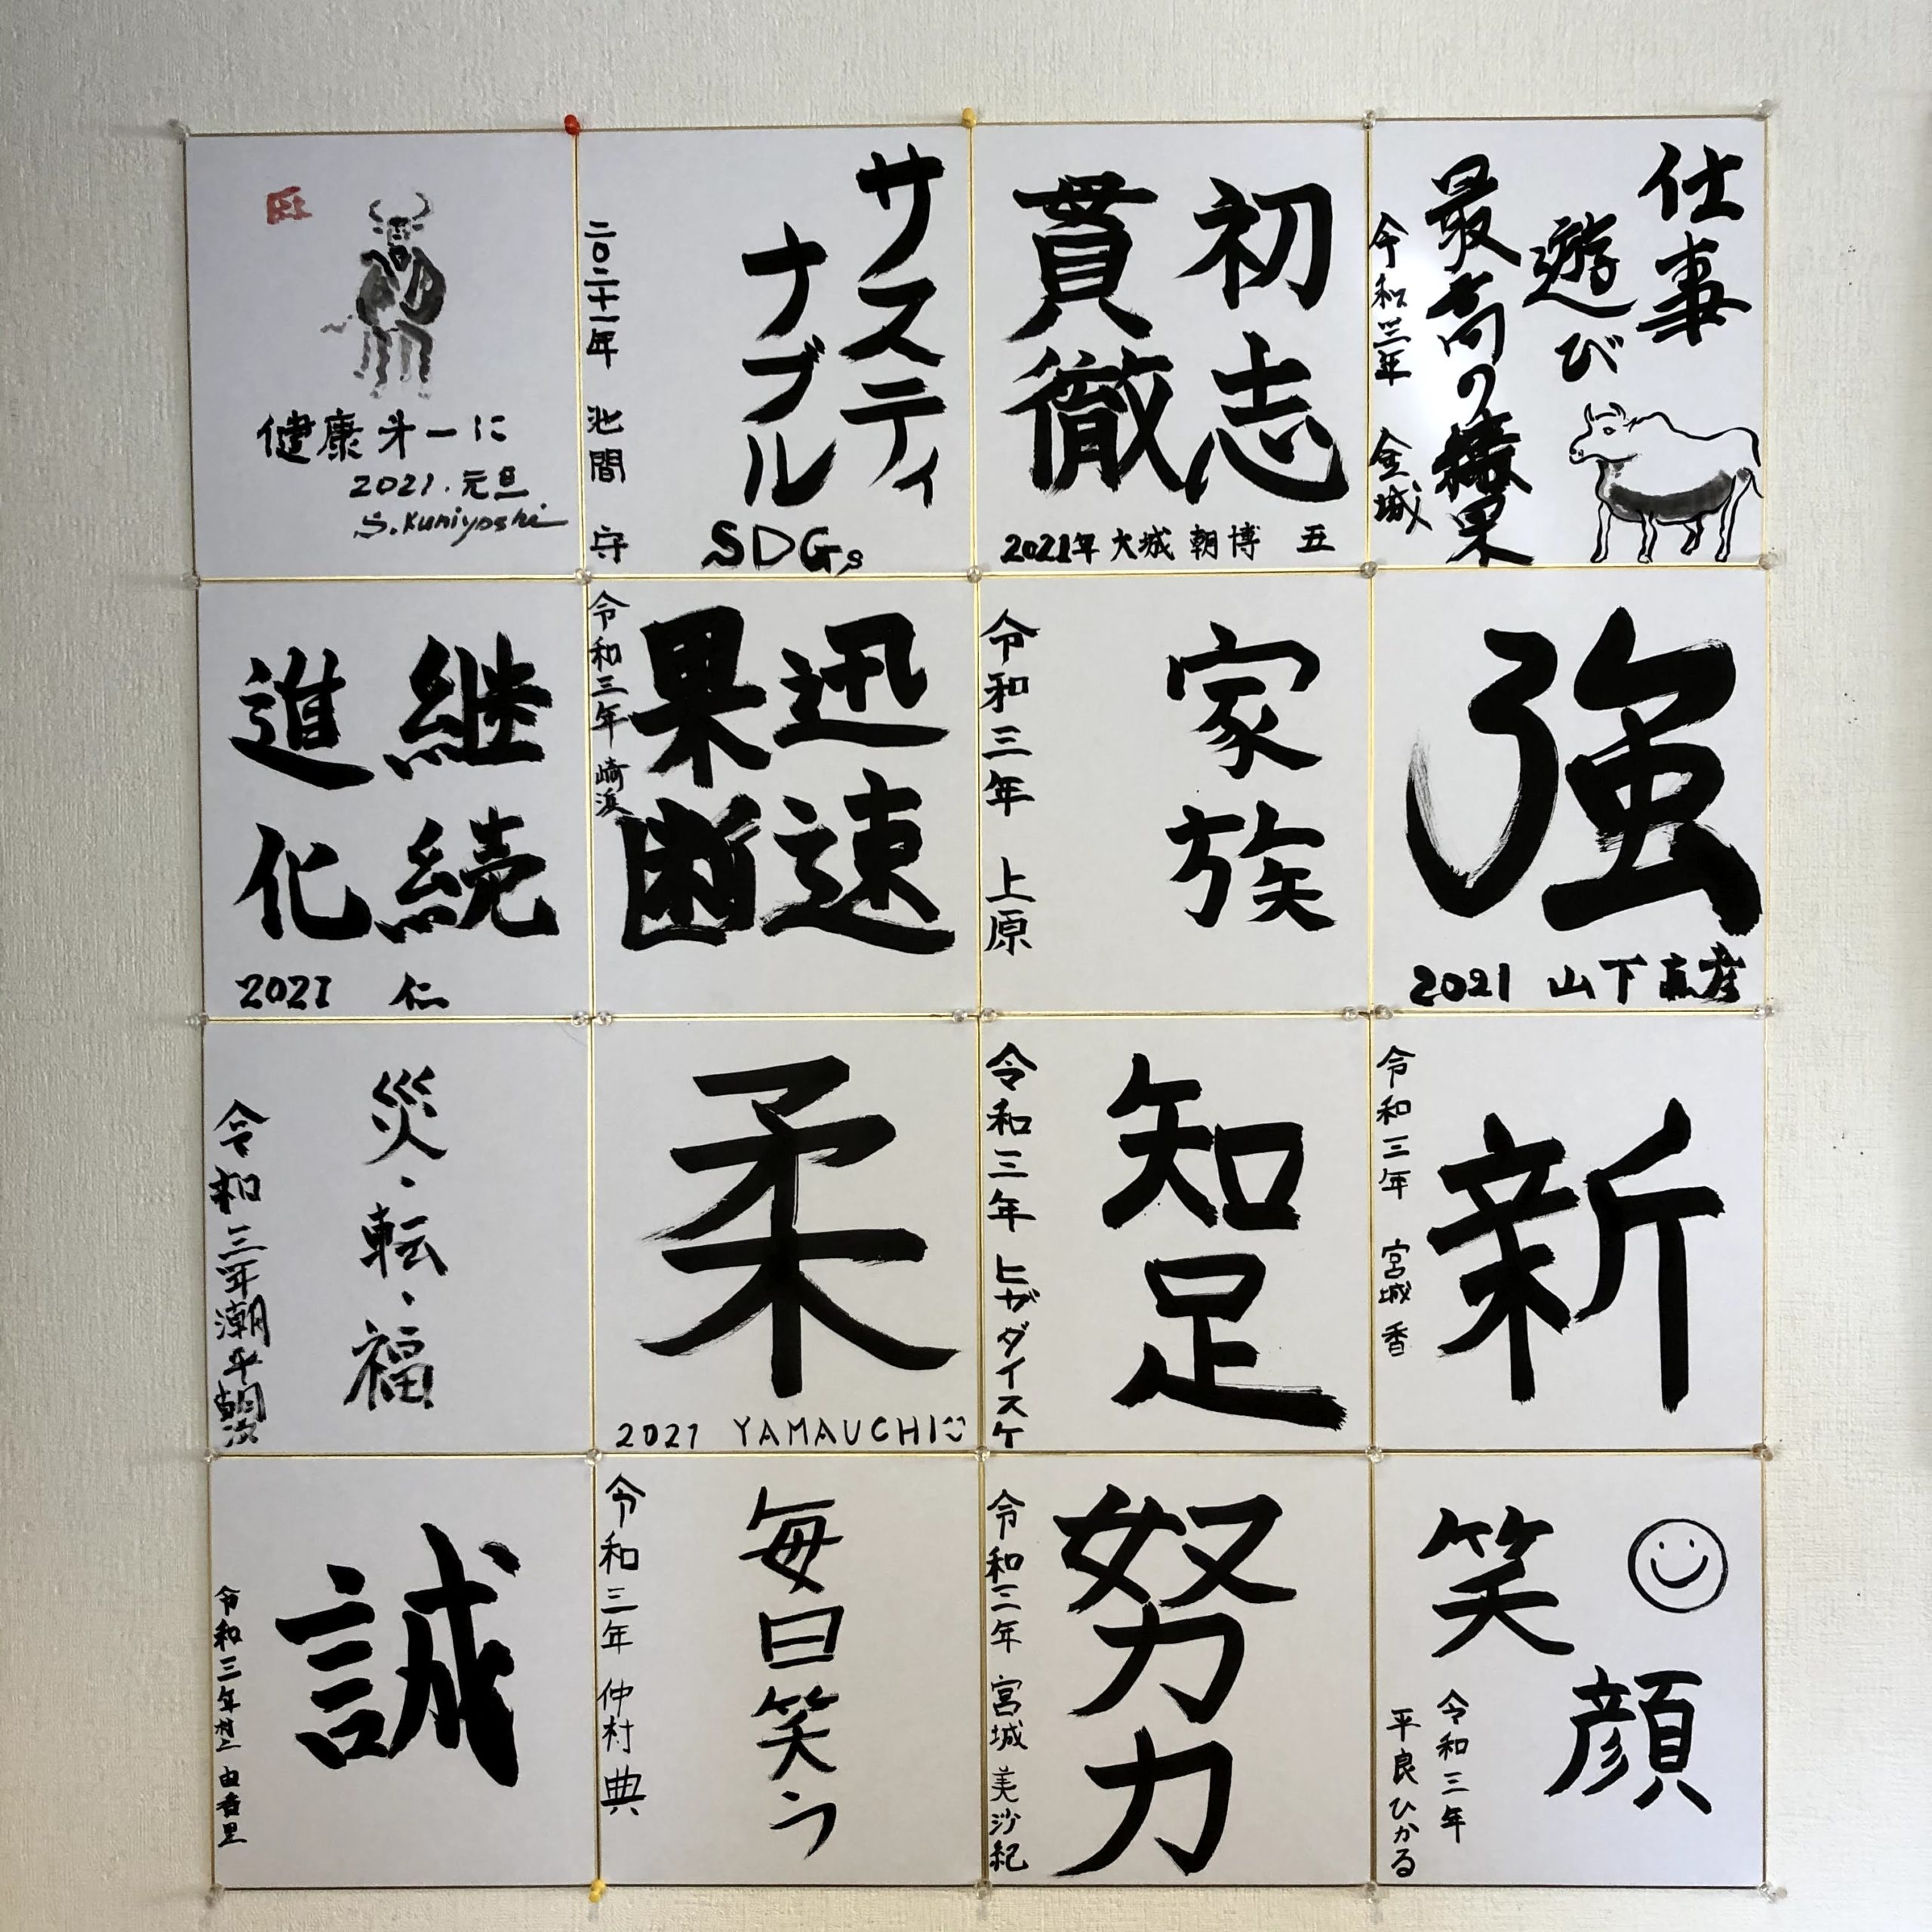 健康才一に
2021.元旦
S.Kuniyoshi
サスティ
ナブル
SDGs
二〇二十一年 池間 守
初志
貫徹
2021年 大城 朝博 五
仕事
遊び
最高の結果
令和三年 金城
継続
進化
2021 仁
迅速
果断
令和三年 崎浜
家族
令和三年 上原
強
2021 山下 直彦
災・転・福
令和三年 潮平
柔
2021 YAMAUCHI
知足
令和三年 ヒガダイスケ
新
令和三年 宮城 香
誠
令和三年 村上 由香里
毎日笑う
令和三年 仲村 典
努力
令和三年 宮城 美沙紀
笑顔
令和三年
平良ひかる